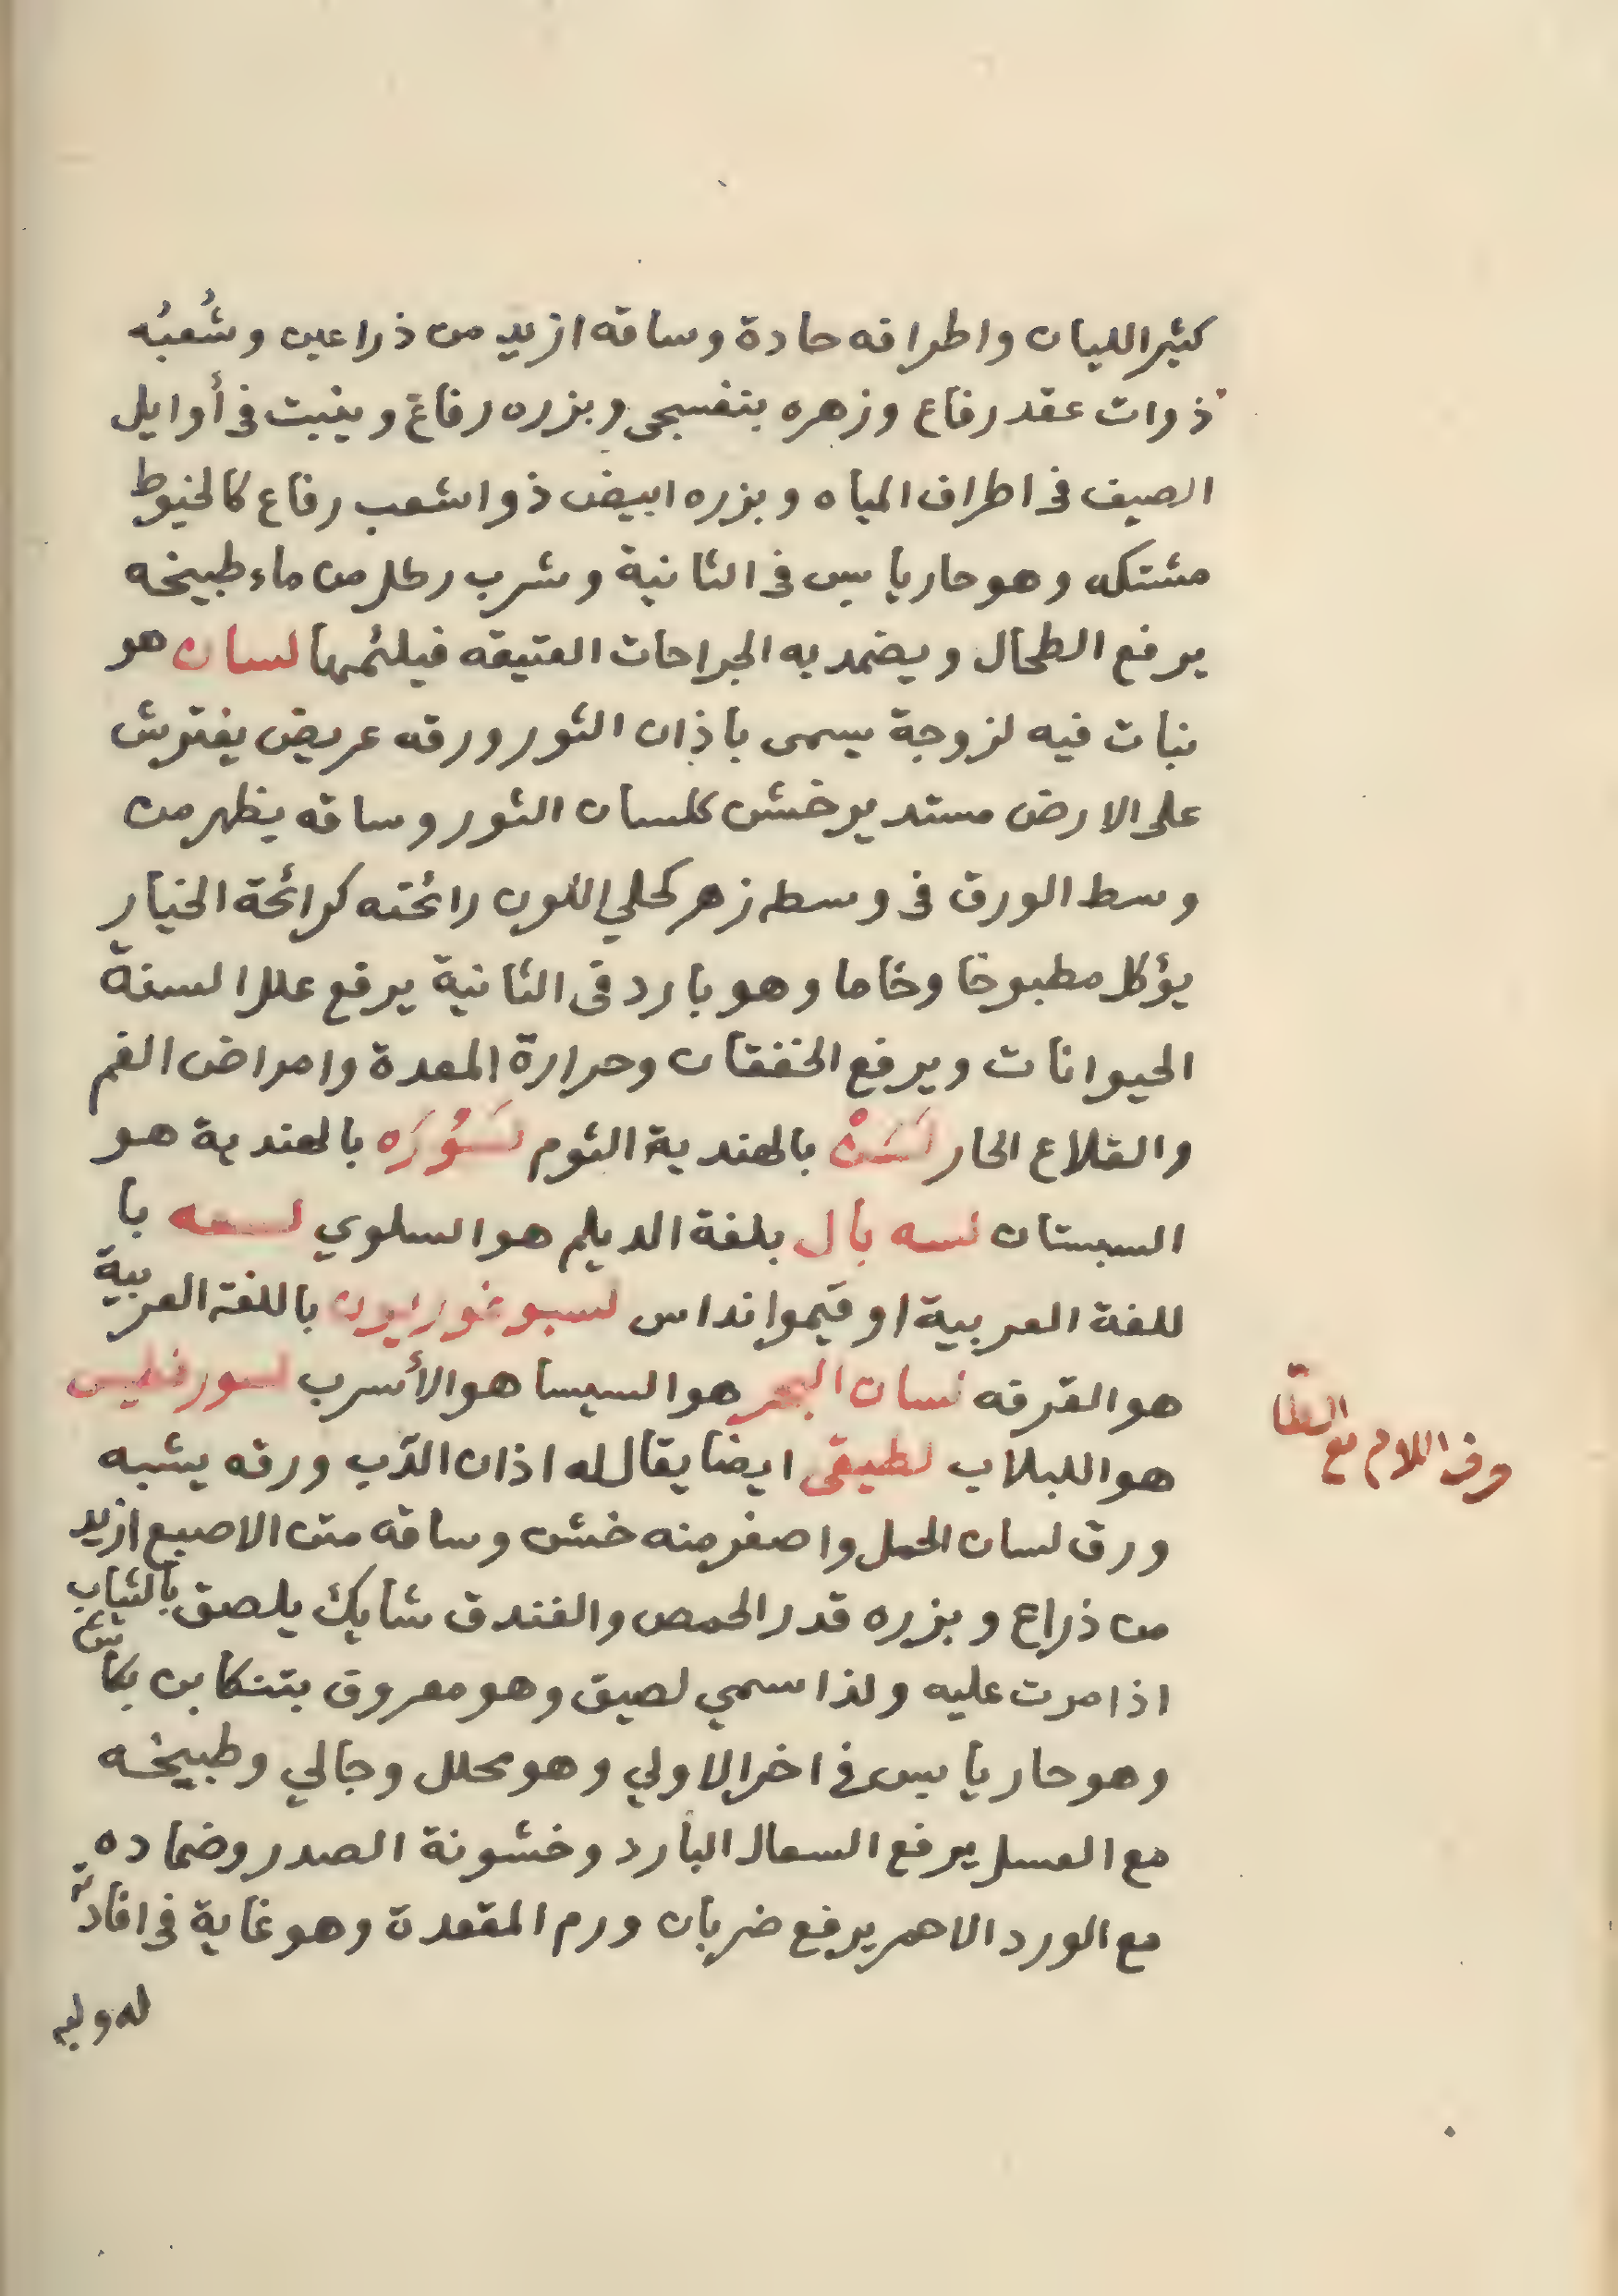 كثير الليان واطرافه حادة وساقه ازيد من ذراعين وشُعبُه
ذوات عقد رفاع وزهره بنفسجى وبزره رفاع وينبت فى أوايل
الصيف فى اطراف المياه وبزره ابيض ذوا شعب رفاع كالخيوط
مشتكه وهو حار يابس فى الثانية وشرب رطل من ماء طبيخه
يرفع الطحال ويضمد به الجراحات العتيقه فيلئمها لسان هو
نبات فيه لزوجة يسمى باذان الثور ورقه عريض يفترش
على الارض مستدير خشن كلسان الثور وساقه يظهر من
وسط الورق فى وسطه زهر كحلي اللون رائحته كرائحة الخيار
يؤكل مطبوخا وخاما وهو بارد فى الثانية يرفع علل السنة
الحيوانات ويرفع الخفقان وحرارة المعدة وامراض الفم
والقلاع الحار لَسَنْ بالهندية الثوم لسَوُرَه بالهندية هو
السبستان لسه بال بلغة الديلم هو السلوي لسعه با
للغة العربية اوقيموانداس لسبوغوريون باللغة العربية
هو القرفه لسان البحر هو السيسا هو الأسرب لسورفليس
هو اللبلاب لطيقى ايضا يقال له اذان الدّب ورقه يشبه
ورق لسان الحمل واصغر منه خشن وساقه متن الاصبع ازيد
من ذراع وبزره قدر الحمص والفندق شايك يلصق بالثياب
اذا مرت عليه ولذا سمي لصيق وهو معروق بتنكابن
وهو حار يابس فى اخر الاولي وهو محلل وجالي وطبيخه
مع العسل يرفع السعال البارد وخشونة الصدر وضماده
مع الورد الاحمر يرفع ضربان ورم المقعدة وهو غاية فى افادته
حرف اللام مع الطا